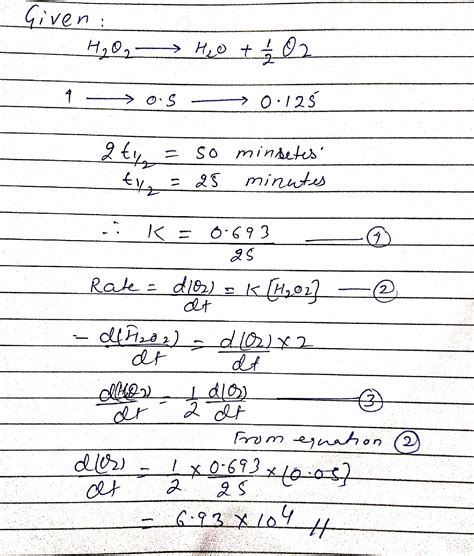 Given :
H₂O₂ ⟶ H₂O + 1/2 O2
1 ⟶ 0.5 ⟶ 0.125
2 t1/2 = 50 minutes
t1/2 = 25 minutes
∴ K = 0.693/25 — ①
Rate = d(O₂)/dt = K [H₂O₂] — ②
- d(H₂O₂)/dt = d(O₂)/dt × 2
d(H₂O₂)/dt = 1/2 d(O₂)/dt — ③
From equation ②
d(O₂)/dt = 1/2 × 0.693/25 × (0.05)
= 6.93 × 10⁴ //